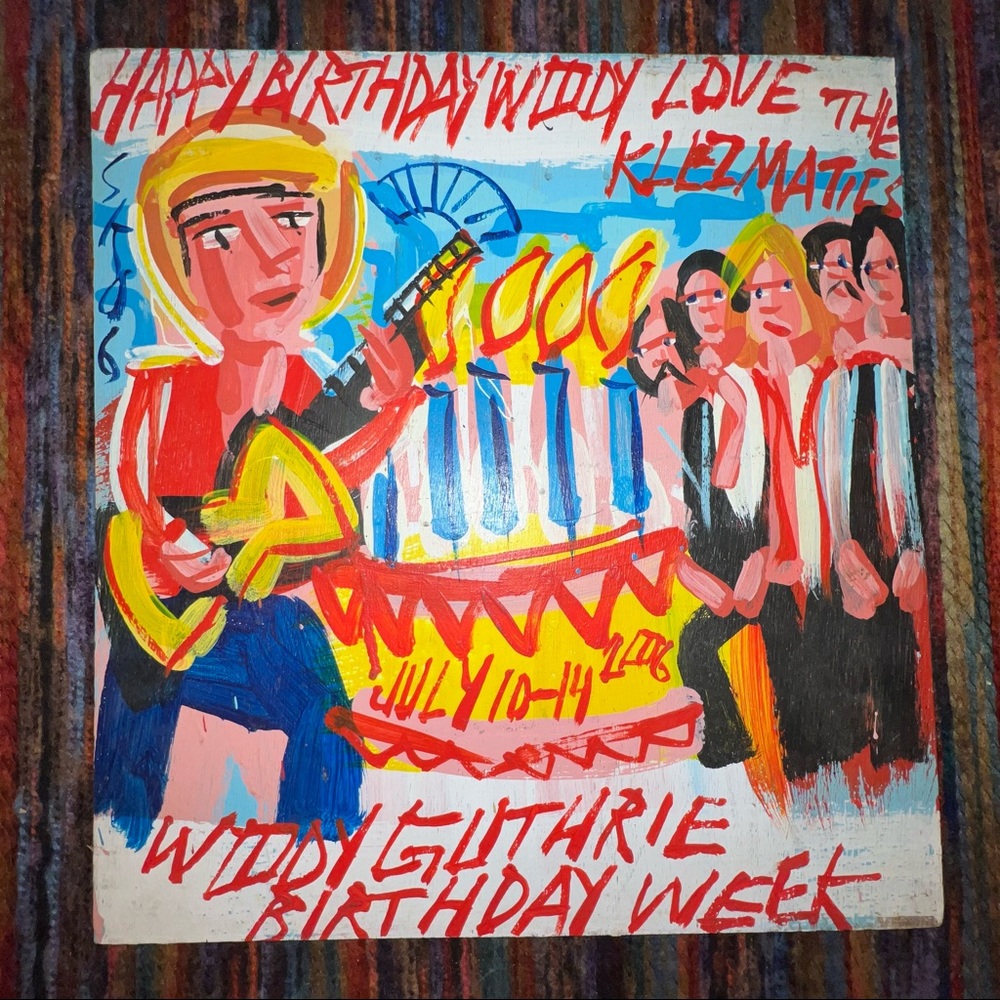 HAPPY BIRTHDAY WOODY LOVE THE
KLEZMATICS
JULY 10-14 2006
WOODY GUTHRIE
BIRTHDAY WEEK